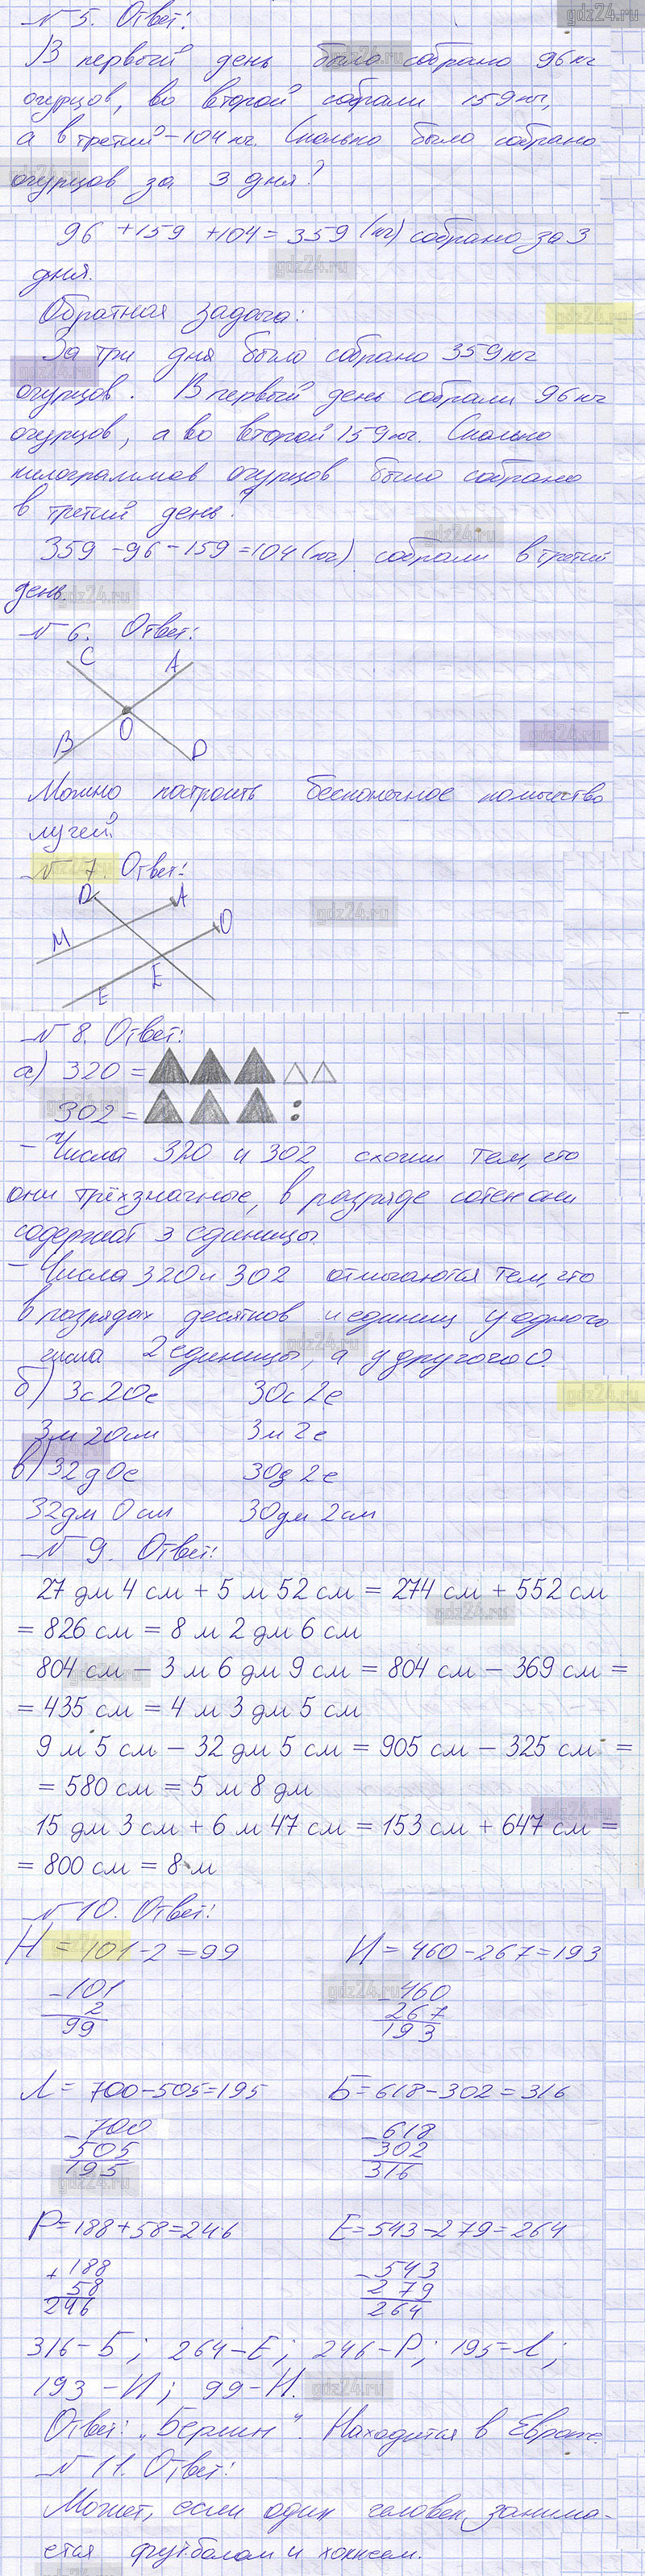 № 5. Ответ:
gdz24.ru
В первый день было собрано 96 кг
огурцов, во второй собрали 159 кг,
а в третий – 104 кг. Сколько было собрано
огурцов за 3 дня?
96 + 159 + 104 = 359 (кг) собрано за 3
gdz24.ru
дня.
Обратная задача:
gdz24.ru
За три дня было собрано 359 кг
огурцов. В первый день собрали 96 кг
огурцов, а во второй 159 кг. Сколько
килограммов огурцов было собрано
в третий день?
gdz24.ru
359 – 96 – 159 = 104 (кг) собрали в третий
день.
gdz24.ru
№ 6. Ответ:
C A
O
B D
gdz24.ru
Можно построить бесконечное количество
лучей.
№ 7. Ответ:
D A O
gdz24.ru
M
E E
№ 8. Ответ:
а) 320 =
302 =
– Числа 320 и 302 схожи тем, что
они трёхзначные, в разряде сотен они
содержат 3 единицы.
– Числа 320 и 302 отличаются тем, что
в разрядах десятков и единиц у одного
числа 2 единицы, а у другого 0.
gdz24.ru
б) 3с 20е 30с 2е
gdz24.ru
3м 20см 3м 2е
в) 32д 0е 30д 2е
32дм 0см 30дм 2см
№ 9. Ответ:
27 дм 4 см + 5 м 52 см = 274 см + 552 см
gdz24.ru
= 826 см = 8 м 2 дм 6 см
804 см – 3 м 6 дм 9 см = 804 см – 369 см =
gdz24.ru
= 435 см = 4 м 3 дм 5 см
9 м 5 см – 32 дм 5 см = 905 см – 325 см =
= 580 см = 5 м 8 дм
gdz24.ru
15 дм 3 см + 6 м 47 см = 153 см + 647 см =
= 800 см = 8 м
№ 10. Ответ:
Н = 101 – 2 = 99 И = 460 – 267 = 193
gdz24.ru
– 101 – 460
2 267
99 193
Л = 700 – 505 = 195 Б = 618 – 302 = 316
– 700 – 618
505 302
195 316
gdz24.ru
Р = 188 + 58 = 246 Е = 543 – 279 = 264
+ 188 – 543
58 279
246 264
316 – Б; 264 – Е; 246 – Р; 195 – Л;
193 – И; 99 – Н.
gdz24.ru
Ответ: „Берлин“. Находится в Европе.
№ 11. Ответ:
Может, если один человек занима-
ется футболом и хоккеем.